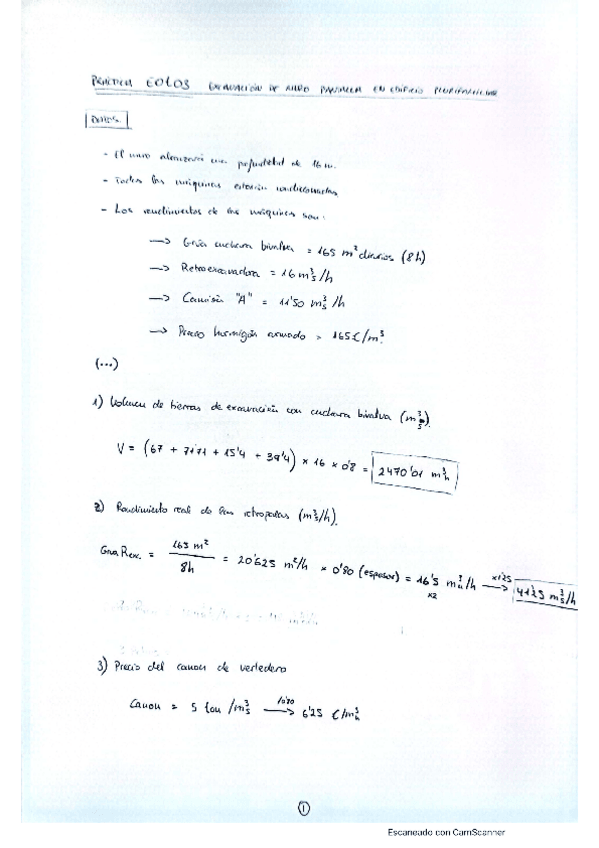 PRÁCTICA E0103 EXCAVACIÓN DE MURO PANTALLA EN EDIFICIO PLURIFAMILIAR
DATOS.
- El muro alcanzará una profundidad de 16 m.
- Todas las máquinas estarán
- Los rendimientos de las máquinas son:
→ Grúa cuchara bivalva = 165 m² diarios (8h)
→ Retroexcavadora = 16 m³s/h
→ Camión "A" = 11'50 m³s/h
→ Precio hormigón armado = 165 €/m³.
(...)
1) Volumen de tierras de excavación con cuchara bivalva (m³s).
V = (67 + 71'71 + 15'4 + 39'4) × 16 × 0'8 = 2470'01 m³h
2) Rendimiento real de las retropalas (m³s/h).
Grúa Rex. = 165 m² / 8h = 20'625 m²/h × 0'80 (espesor) = 16'5 m³h/h ×2 → ×1'25 41'25 m³s/h
3) Precio del canon de vertedero
Canon = 5 /m³s → /0'80 6'25 €/m³h
1
Escaneado con CamScanner